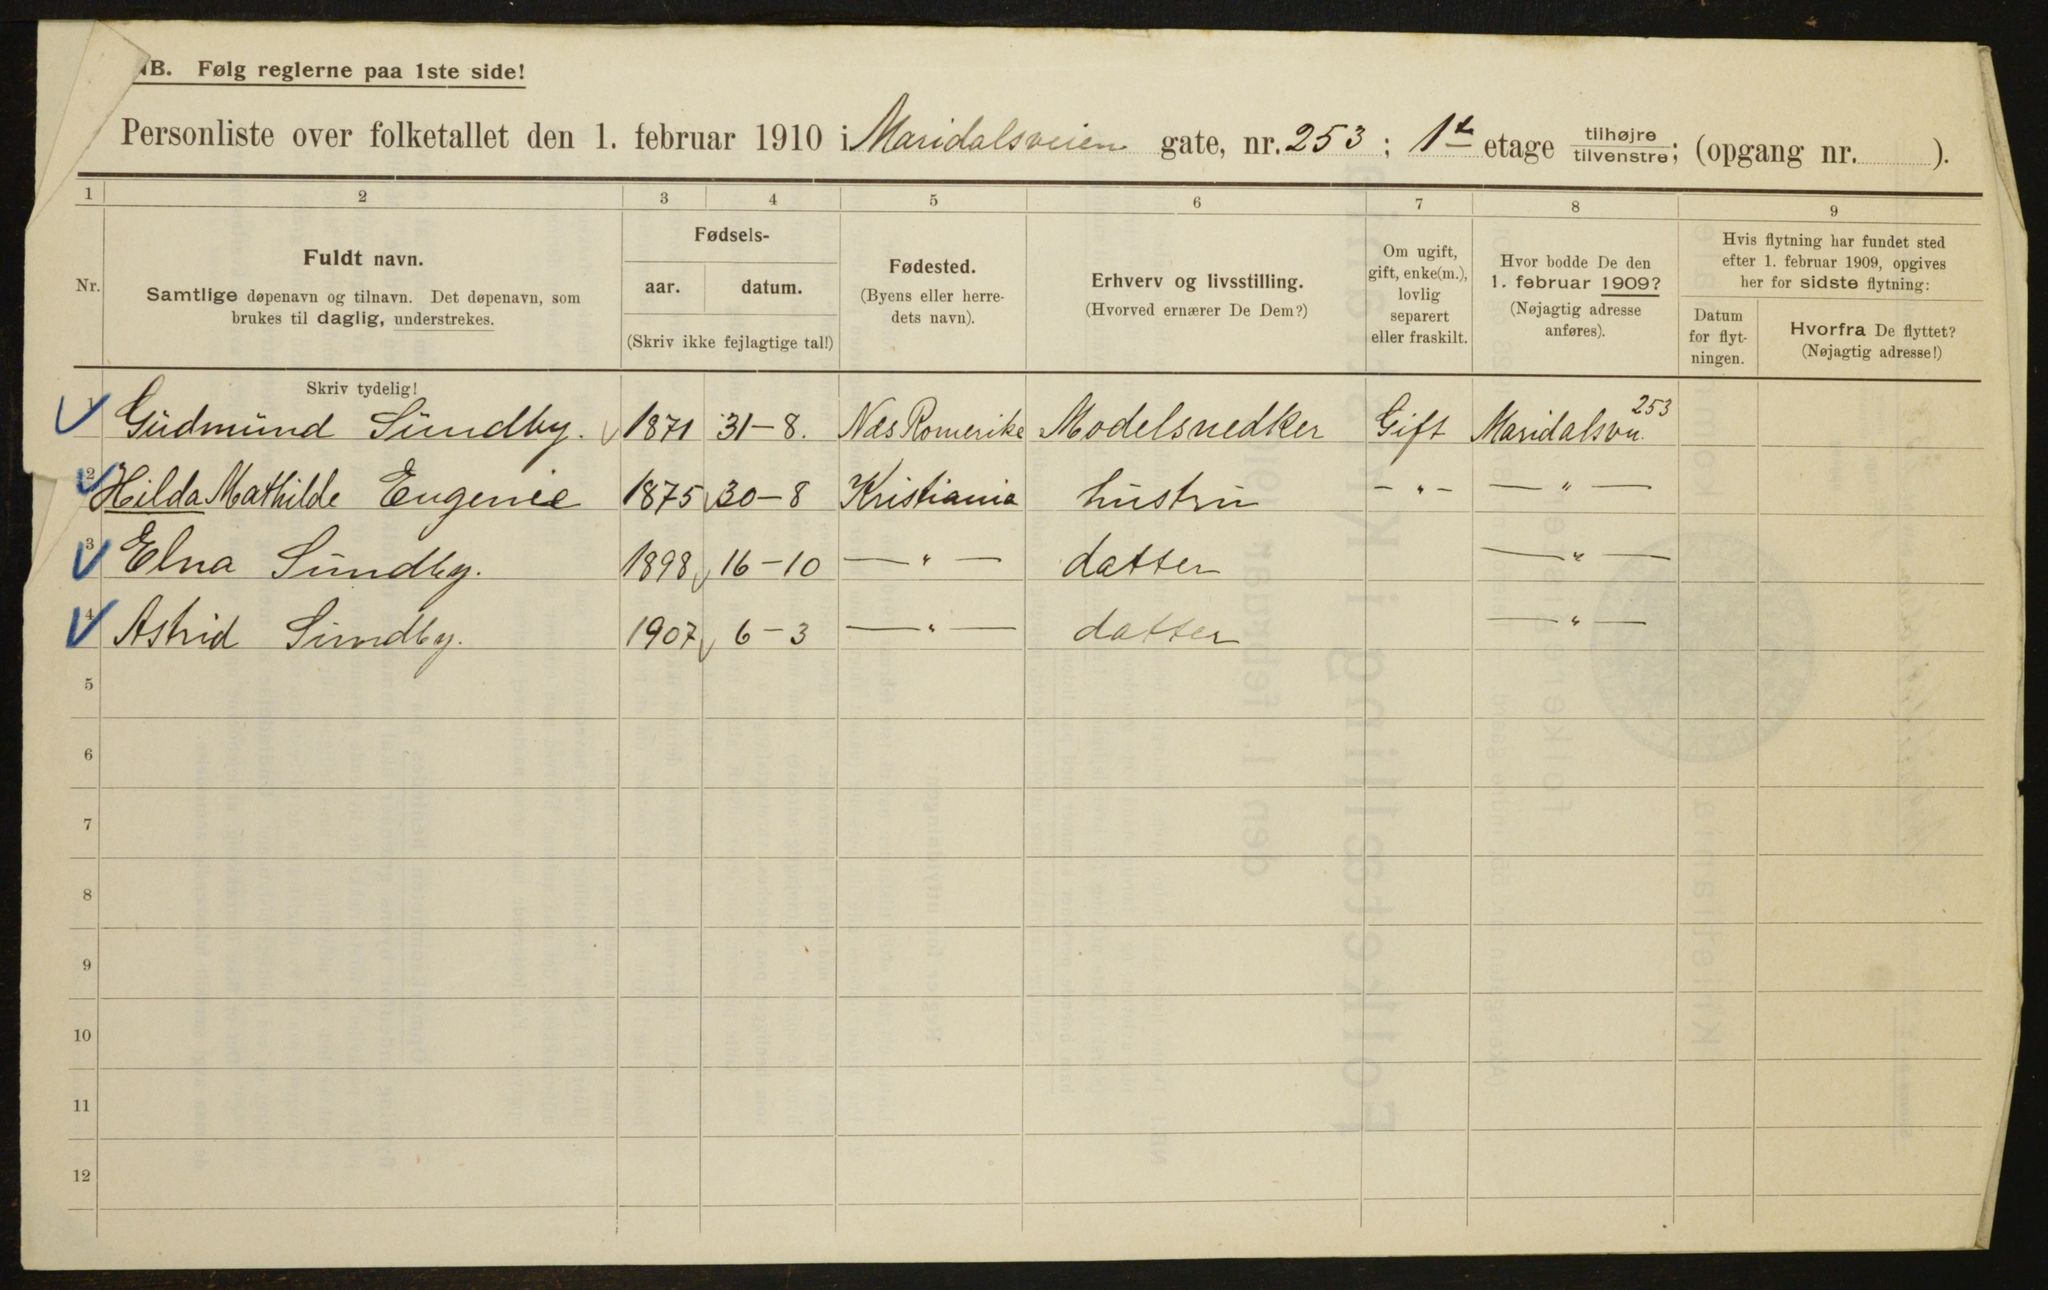 NB. Følg reglerne paa 1ste side!
Personliste over folketallet den 1. februar 1910 i Maridalsveien gate, nr. 253; 1ste etage tilhøjre / tilvenstre; (opgang nr. ).
1 2 3 4 5 6 7 8 9
Nr.
Fuldt navn.
Samtlige døpenavn og tilnavn. Det døpenavn, som
brukes til daglig, understrekes.
Fødsels-
aar. datum.
(Skriv ikke fejlagtige tal!)
Fødested.
(Byens eller herre-
dets navn).
Erhverv og livsstilling.
(Hvorved ernærer De Dem?)
Om ugift,
gift, enke(m.),
lovlig
separert
eller fraskilt.
Hvor bodde De den
1. februar 1909?
(Nøjagtig adresse
anføres).
Hvis flytning har fundet sted
efter 1. februar 1909, opgives
her for sidste flytning:
Datum
for flyt-
ningen.
Hvorfra De flyttet?
(Nøjagtig adresse!)
Skriv tydelig!
1 Gudmund Sundby. 1871 31-8. Næs Romerike Modelsnedker Gift Maridalsvn. 253
2 Hilda Mathilde Eugenie 1875 30-8 Kristiania hustru - " - — " —
3 Elna Sundby. 1898 16-10 — " — datter — " —
4 Astrid Sundby. 1907 6-3 — " — datter — " —
5
6
7
8
9
10
11
12